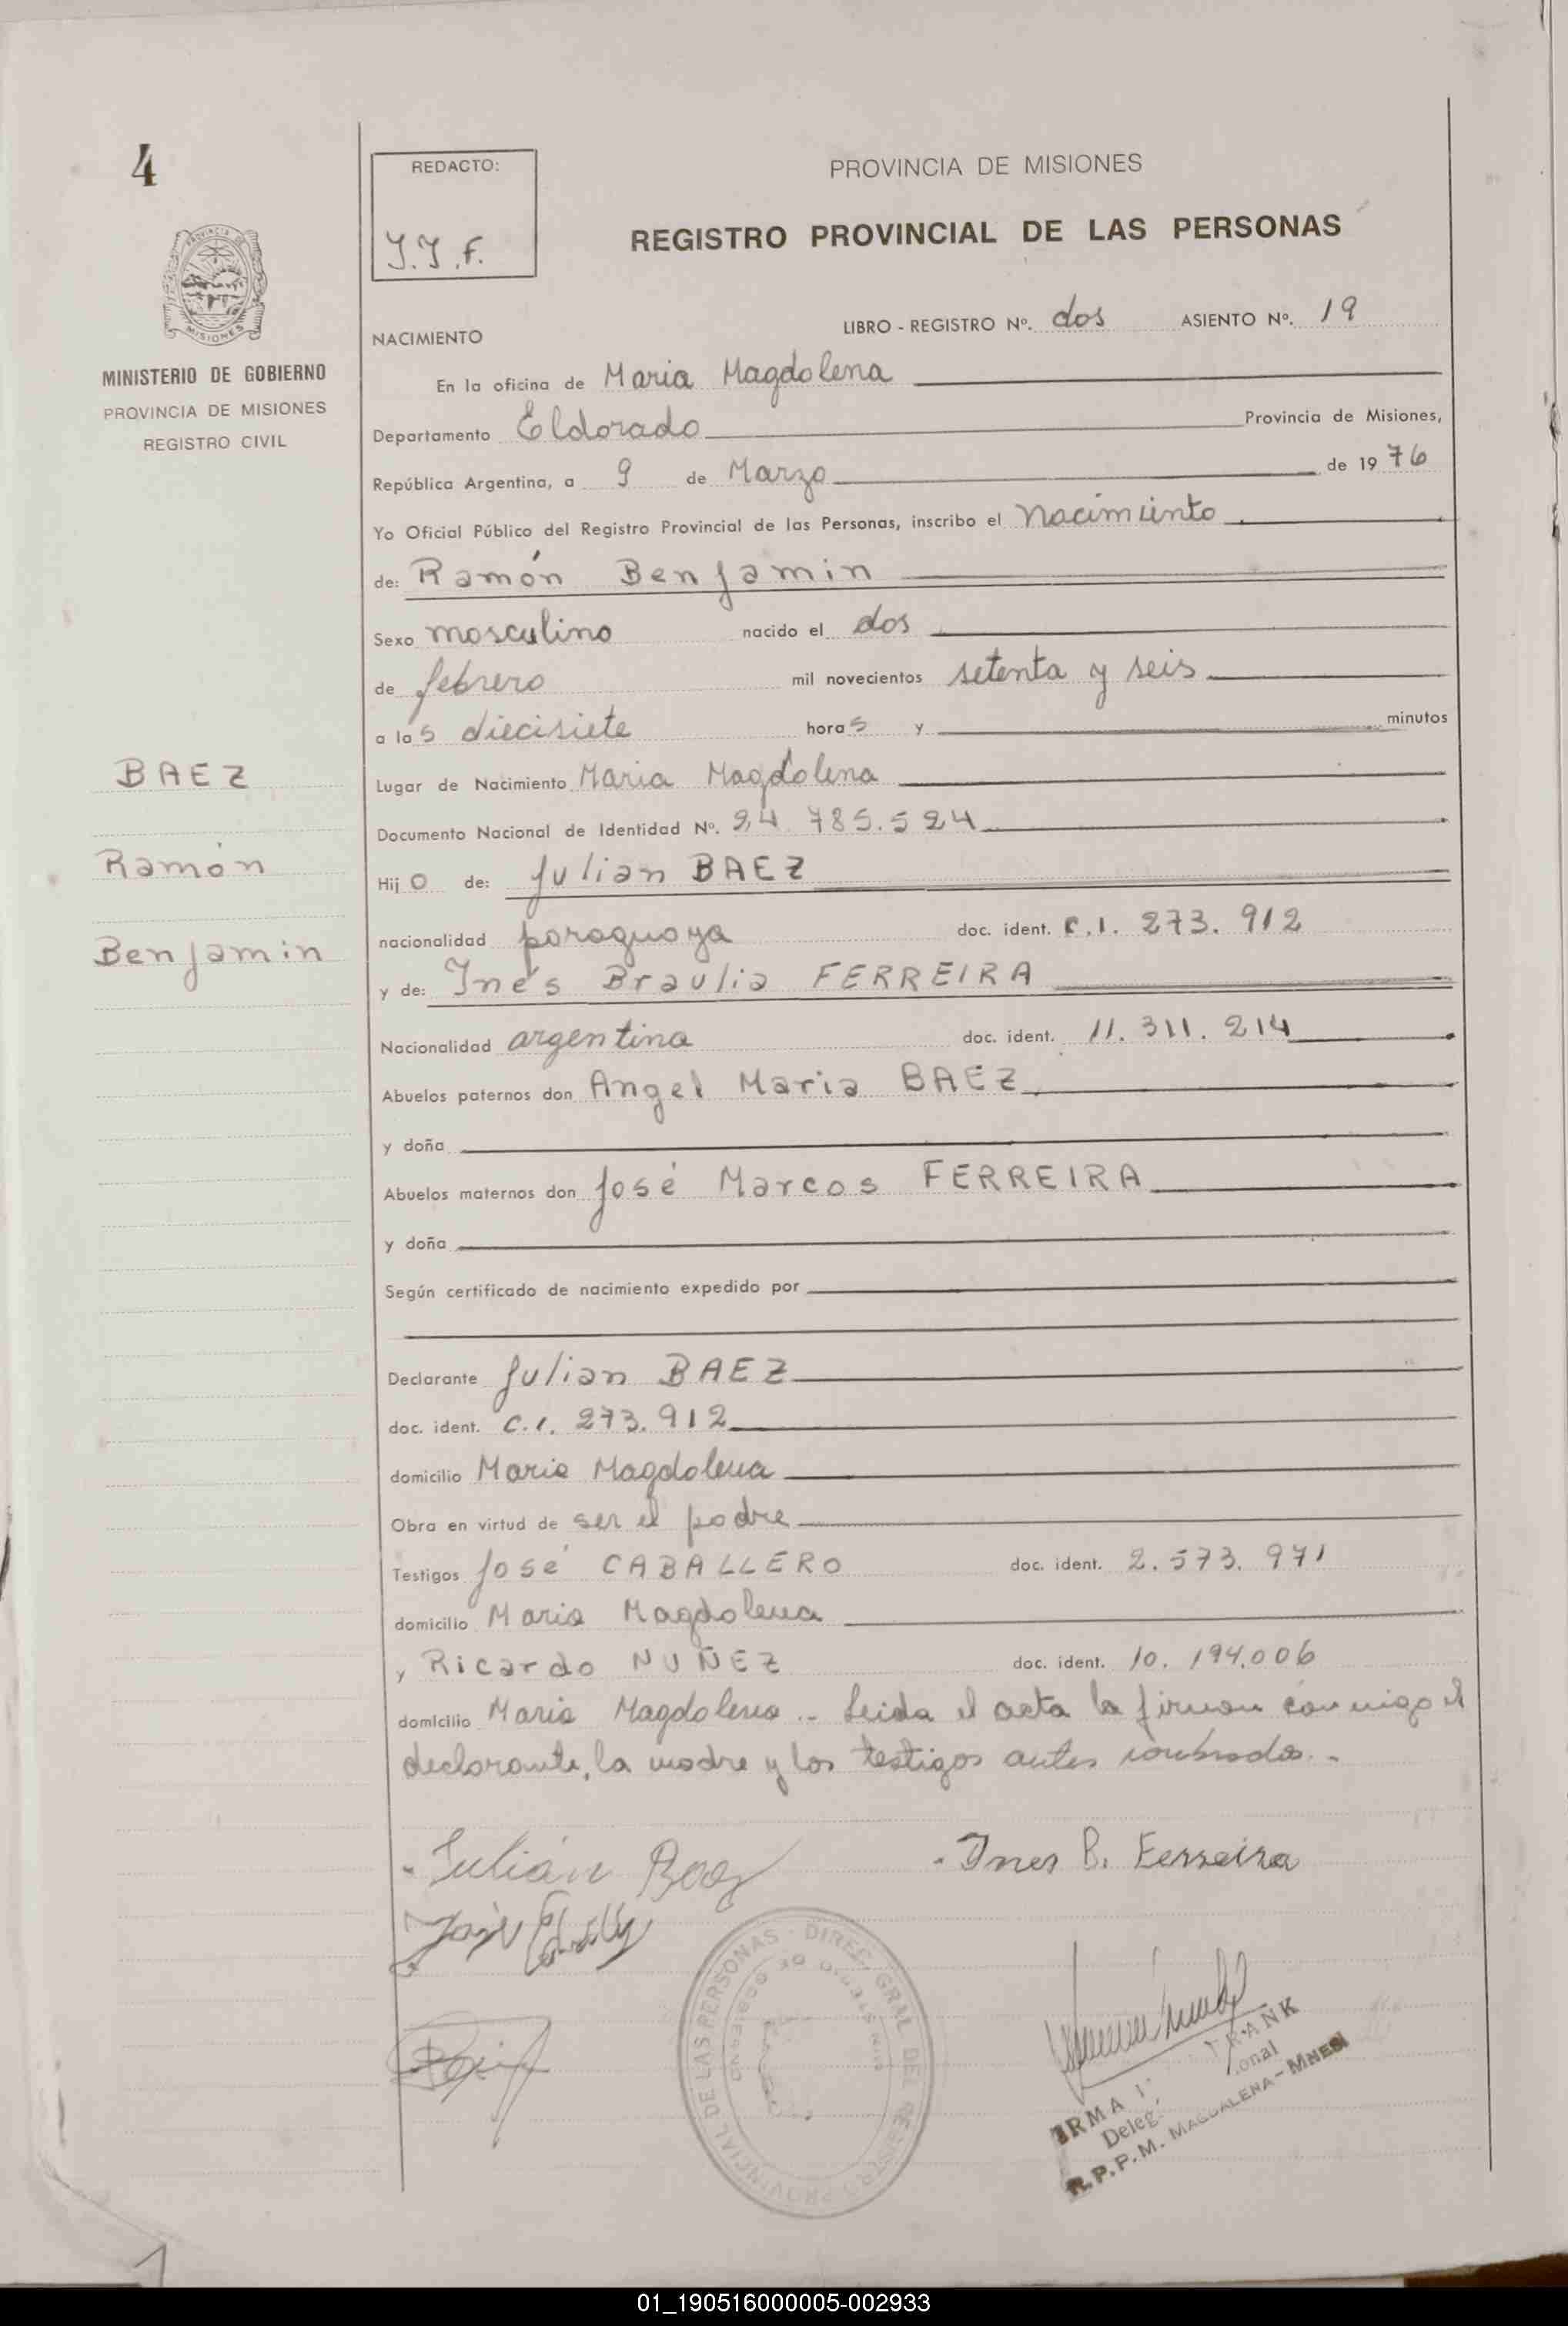 4
REDACTO:
J.J.F.
PROVINCIA DE MISIONES
REGISTRO PROVINCIAL DE LAS PERSONAS
PROVINCIA
MISIONES
MINISTERIO DE GOBIERNO
PROVINCIA DE MISIONES
REGISTRO CIVIL
BAEZ
Ramón
Benjamin
NACIMIENTO
LIBRO - REGISTRO Nº. dos ASIENTO Nº. 19
En la oficina de Maria Magdalena
Departamento Eldorado Provincia de Misiones,
República Argentina, a 9 de Marzo de 1976
Yo Oficial Público del Registro Provincial de las Personas, inscribo el Nacimiento
de: Ramón Benjamin
Sexo masculino nacido el dos
de febrero mil novecientos setenta y seis
a las diecisiete horas y minutos
Lugar de Nacimiento Maria Magdalena
Documento Nacional de Identidad Nº. 24.785.524
Hijo de: Julian BAEZ
nacionalidad paraguaya doc. ident. C.I. 273.912
y de: Inés Braulia FERREIRA
Nacionalidad argentina doc. ident. 11.311.214
Abuelos paternos don Angel Maria BAEZ
y doña
Abuelos maternos don José Marcos FERREIRA
y doña
Según certificado de nacimiento expedido por
Declarante Julian BAEZ
doc. ident. C.I. 273.912
domicilio Maria Magdalena
Obra en virtud de ser el padre
Testigos José CABALLERO doc. ident. 2.573.971
domicilio Maria Magdalena
y Ricardo NUÑEZ doc. ident. 10.194.006
domicilio Maria Magdalena.- Leida el acta la firman conmigo el
declarante, la madre y los testigos antes nombrados.-
Julián Baez
Ines B. Ferreira
DIREC. GRAL. DEL REGISTRO PROVINCIAL DE LAS PERSONAS
MINISTERIO DE GOBIERNO
IRMA FRANK
R.P.P.M. MAGDALENA - MNES
01_190516000005-002933